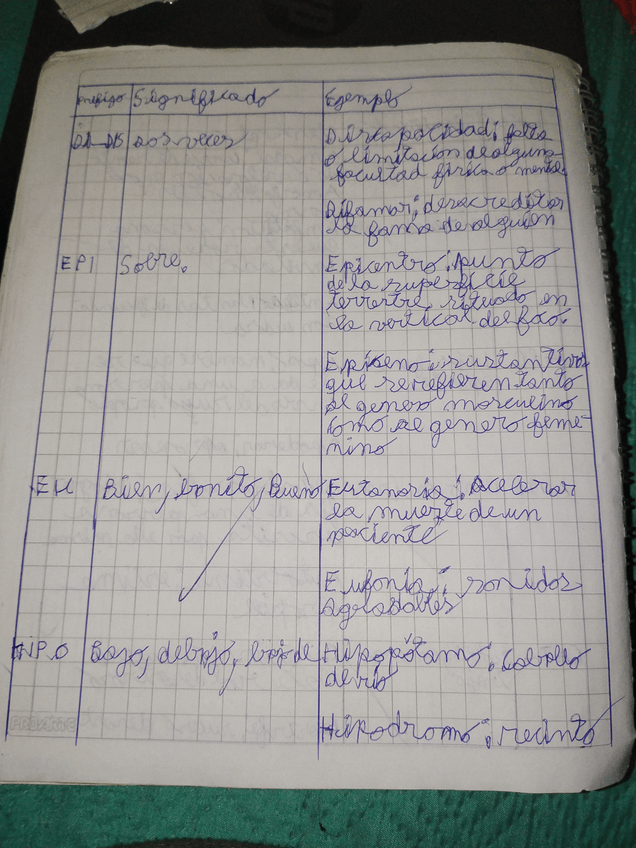 Prefijo Significado Ejemplo
DI-DIS Dos veces Discapacidad: falta
o limitación de alguna
facultad física o mental
Difamar: desacreditar
la fama de alguien
EPI Sobre. Epicentro: punto
de la superficie
terrestre situado en
la vertical del foco.
Epiceno: sustantivos
que se refieren tanto
al genero masculino
como al genero feme-
nino
EU Bien, bonito, Bueno Eutanasia: Acelerar
la muerte de un
paciente
Eufonia: sonidos
Agradables
HIPO Bajo, debajo, Hipopótamo: Caballo
de río
Hipodromo: recinto